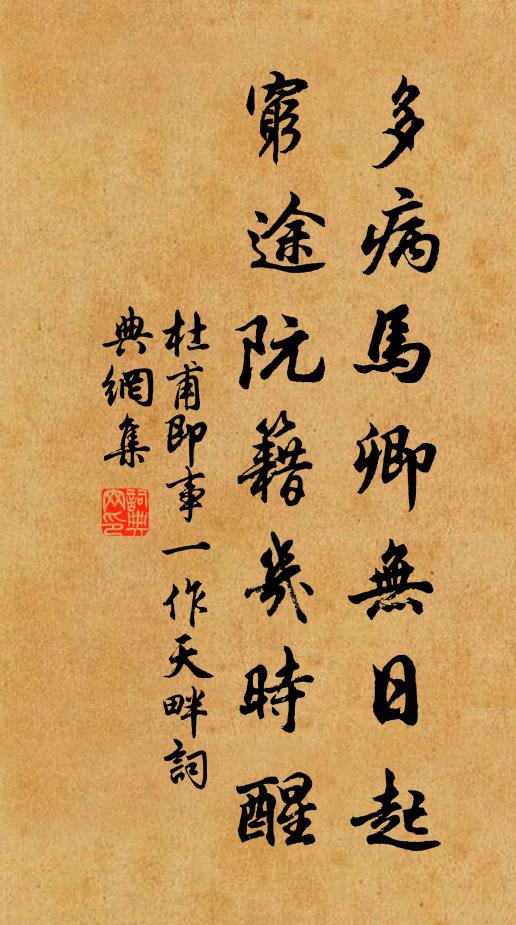 多病馬卿無日起
窮途阮籍幾時醒
杜甫即事一作天畔詞
典網集
詞典
网印